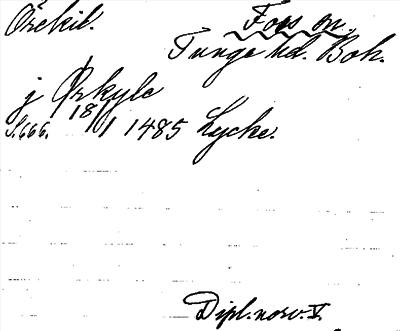 Örekil. Foss sn.,
Tunge hd. Boh.
j Ørkyle
S. 666. 18/1 1485 Lycke.
Dipl. norv. V.